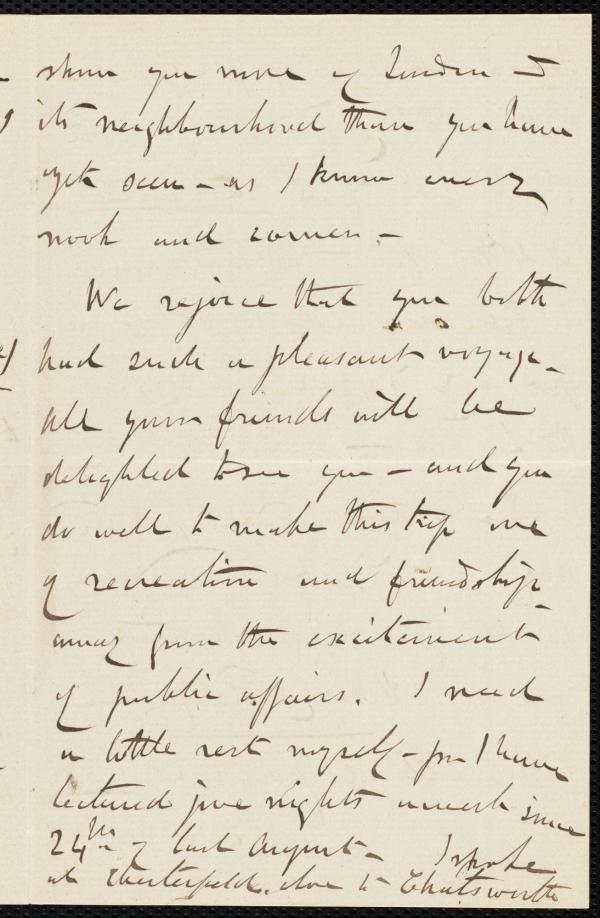 show you more of London &
its neighbourhood than you have
yet seen – as I know every
nook and corner. –
We rejoice that you both
had such a pleasant voyage –
All your friends will be
delighted to see you – and you
do well to make this trip one
of recreation and friendship –
away from the excitement
of public affairs. I need
a little rest myself – for I have
lectured five nights a week since
24th of last August – I spoke
at Chesterfield, close to Chatsworth